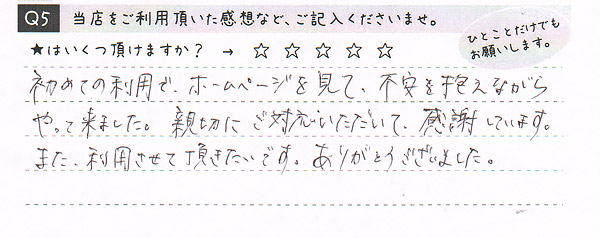 Q5 当店をご利用頂いた感想など、ご記入くださいませ。
★はいくつ頂けますか？ → ☆ ☆ ☆ ☆ ☆
ひとことだけでも
お願いします。
初めての利用で、ホームページを見て、不安を抱えながら
やって来ました。親切にご対応いただいて、感謝しています。
また、利用させて頂きたいです。ありがとうございました。